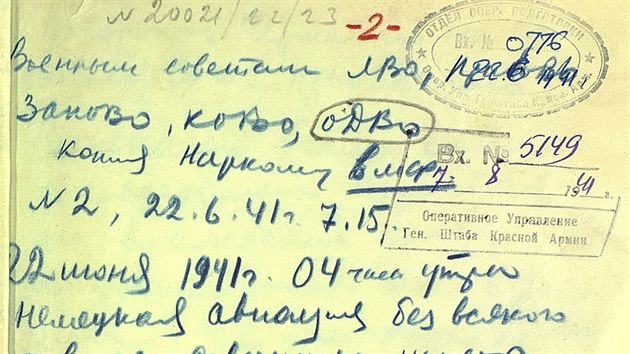 N 20021/22/23
-2-
ОТДЕЛ ОПЕР. ПОДГОТОВКИ
Вх. № 0776
22 6 1941 г.
Военным советам ЛВО, ПрибОВО
ЗапОВО, КОВО, ОДВО
Копия Наркому ВМФ
Вх. № 5149
7. 8 1941 г.
Оперативное Управление
Ген. Штаба Красной Армии
N 2, 22.6.41г. 7.15.
22 июня 1941г. 04 часа утра
немецкая авиация без всякого